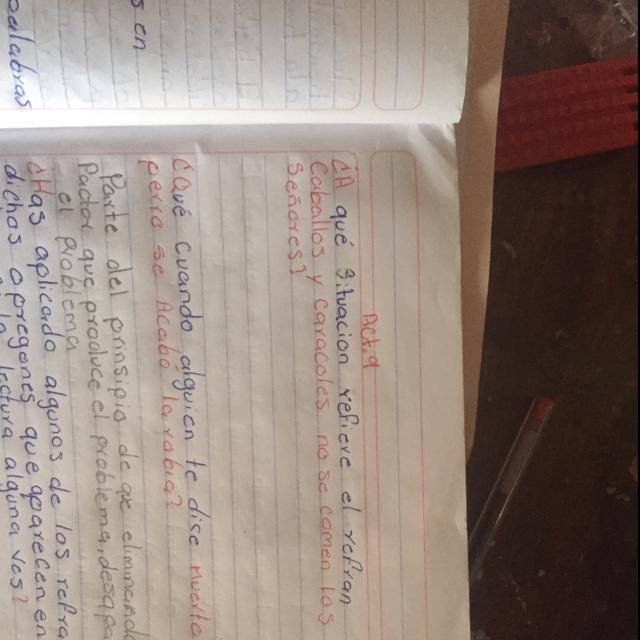 s en
palabras
Act 9
¿A qué situacion refieve el refran
Caballos y caracoles no se comen los
Señores?
¿Qué cuando alguien te dice muelto
perro se Acabó la rabia?
Parte del prinsipio de qe eliminando
que produce el problema, desapa
el problema
¿Has aplicado algunos de los refra
dichos a pregones que aparecen en
la lectura alguna ves?